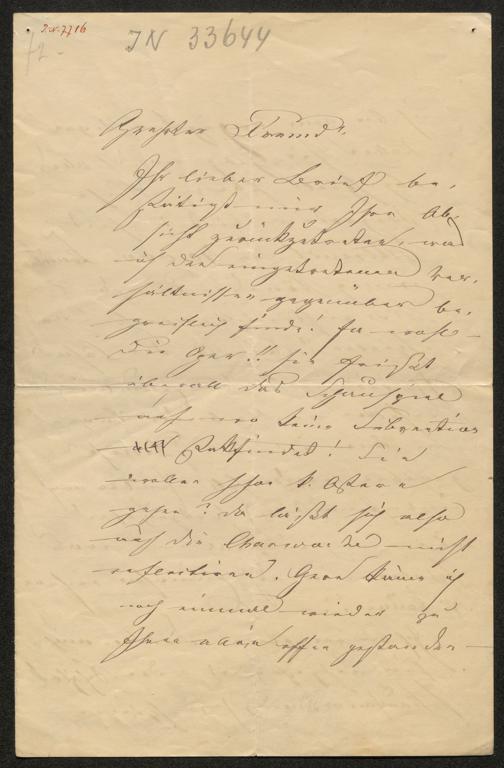 I.N. 7716
IN 33644
Geehrter Freund!
Ihr lieber Brief be-
stätigt mir Ihre Ab-
sicht zurückzutreten, was
ich den eingetretenen Ver-
hältnissen gegenüber be-
greiflich finde! Ja wohl –
die Oper!! sie drückt
überall das Schauspiel
auch wo keine Subvention
stattfindet! Sie
wollen schon v. Ostern
gehen? da läßt sich also
auf die Charwoche nicht
reflectiren. Gern käme ich
noch einmal wieder zu
Ihnen allein offen gestanden –